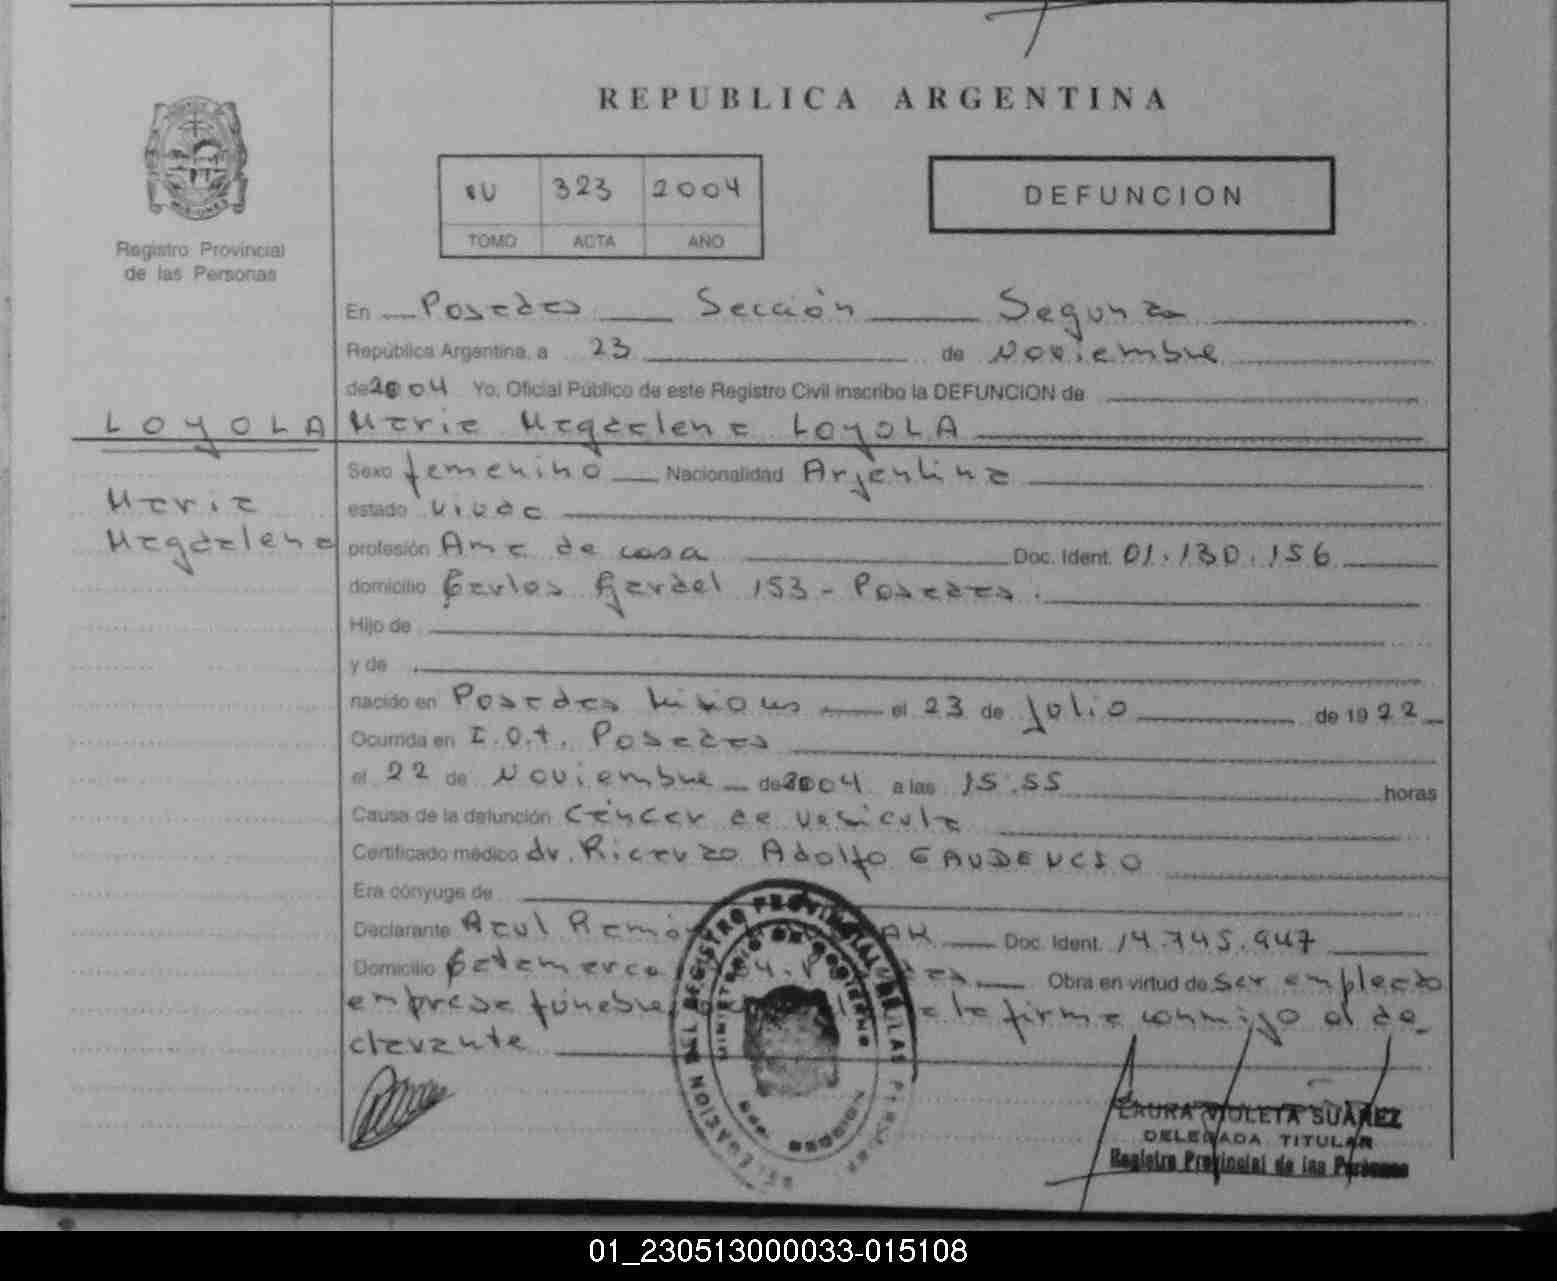 REPUBLICA ARGENTINA
323 2004
TOMO ACTA AÑO
DEFUNCION
Registro Provincial
de las Personas
En Posadas Sección Segunda
República Argentina, a 23 de Noviembre
de 2004 Yo, Oficial Público de este Registro Civil inscribo la DEFUNCION de
LOYOLA María Magdalena LOYOLA
Sexo femenino Nacionalidad Argentina
María
estado viuda
Magdalena
profesión Ama de casa Doc. Ident. 01.130.156
domicilio Carlos Gardel 153 - Posadas.
Hijo de
y de
nacido en Posadas Misiones el 23 de Julio de 1922
Ocurrida en I.O.T. Posadas
el 22 de Noviembre de 2004 a las 15:55 horas
Causa de la defunción Cáncer de vesícula
Certificado médico dr. Ricardo Adolfo GAUDENCIO
Era cónyuge de
Declarante Raul Ramón Doc. Ident. 14.745.947
Domicilio Catamarca Obra en virtud de ser empleado
empresa fúnebre la firma conmigo el de-
clarante
DELEGACION DEL REGISTRO PROVINCIAL DE LAS PERSONAS
MINISTERIO DE GOBIERNO
LAURA VIOLETA SUAREZ
DELEGADA TITULAR
Registro Provincial de las Personas
01_230513000033-015108